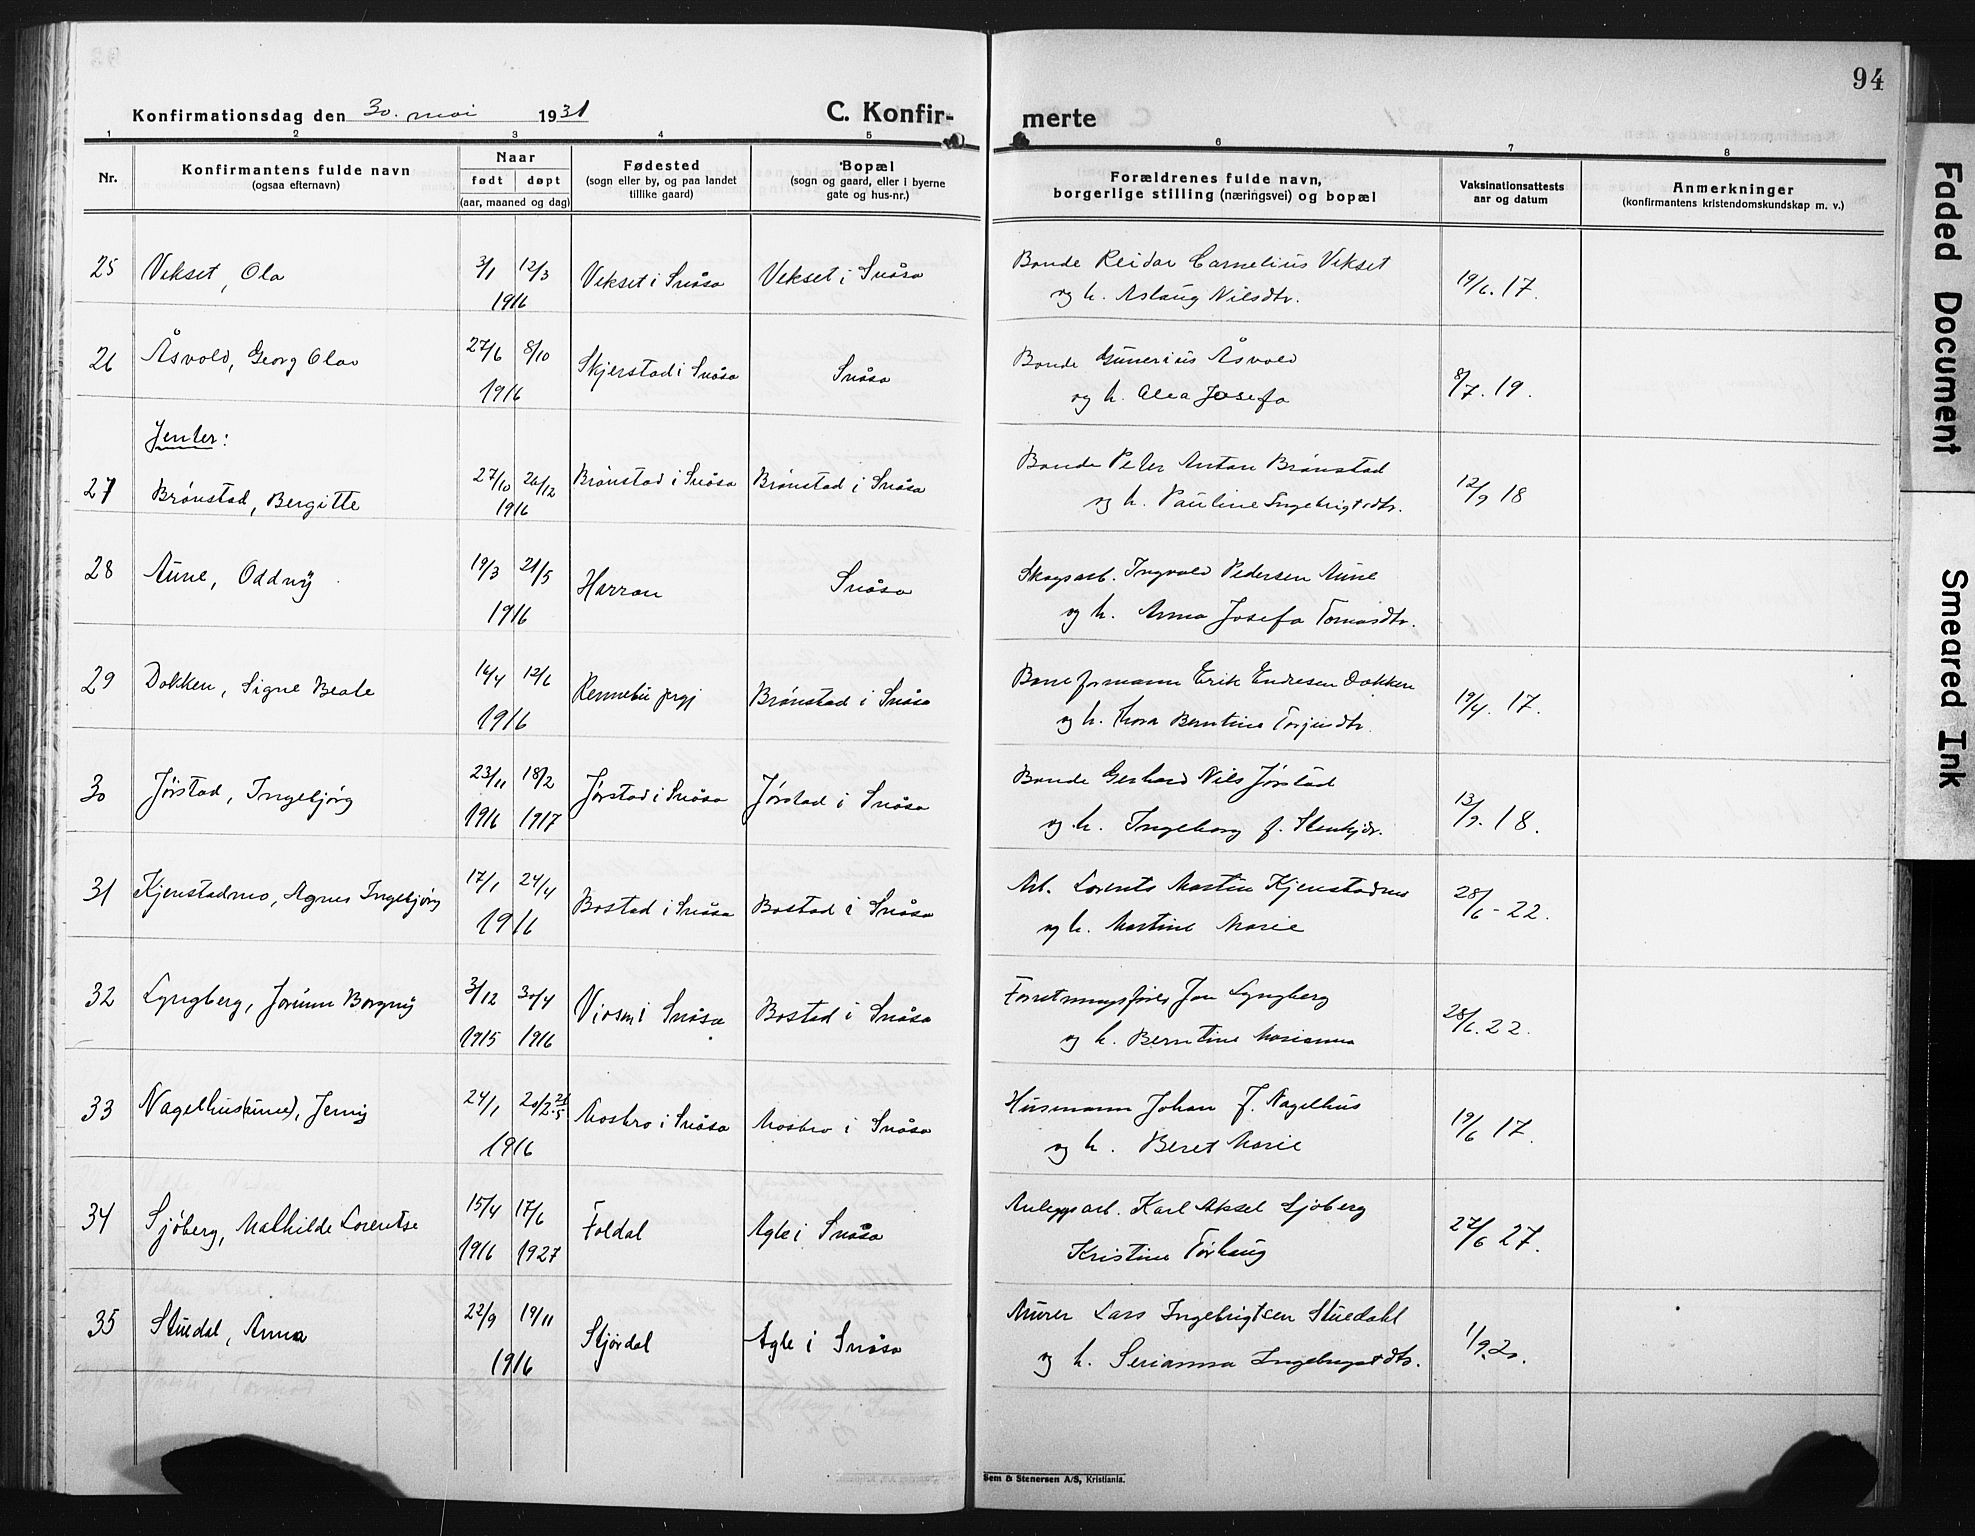 94
Konfirmationsdag den 30. mai 1931
C. Konfir-
merte
1 2 3 4 5 6 7 8
Nr.
Konfirmantens fulde navn
(ogsaa efternavn)
Naar
født døpt
(aar, maaned og dag)
Fødested
(sogn eller by, og paa landet
tillike gaard)
Bopæl
(sogn og gaard, eller i byerne
gate og hus-nr.)
Forældrenes fulde navn,
borgerlige stilling (næringsvei) og bopæl
Vaksinationsattests
aar og datum
Anmerkninger
(konfirmantens kristendomskundskap m. v.)
25 Vekset, Ola 3/1 12/3 Vekset i Snåsa Vekset i Snåsa Bonde Reidar Cornelius Vekset 19/6. 17.
1916 og h. Aslaug Nilsdtr.
26 Åsvold, Georg Olav 27/6 8/10 Skjerstad i Snåsa Snåsa Bonde Gunerius Åsvold 8/7. 19.
1916 og h. Alea Josefa
Jenter:
27 Brønstad, Bergitte 27/10 26/12 Brønstad i Snåsa Brønstad i Snåsa Bonde Peter Anton Brønstad 12/9 18
1916 og h. Pauline Ingebrigtsdtr.
28 Aune, Oddny 19/3 21/5 Harran Snåsa Skogsarb. Ingvald Pedersen Aune
1916 og h. Anna Josefa Tomasdtr.
29 Dokken, Signe Beate 16/4 12/6 Rennebu prgj Brønstad i Snåsa Baneformann Erik Endresen Dokken 19/4. 17.
1916 og h. Thora Berntine Torjusdtr.
30 Jørstad, Ingebjørg 23/11 18/2 Jørstad i Snåsa Jørstad i Snåsa Bonde Gerhard Nils Jørstad 13/9. 18.
1916 1917 og h. Ingeborg f.
31 Kjenstadmo, Agnes Ingebjørg 17/1 24/4 Bostad i Snåsa Bostad i Snåsa Arb. Lorents Martin Kjenstadmo 28/6 - 22.
1916 og h. Martine Marie
32 Lyngberg, Jorunn Borgny 3/12 30/4 Viosen i Snåsa Bostad i Snåsa Forretningsfører Jon Lyngberg 28/6. 22.
1915 1916 og h. Berntine Marianna
33 Nagelhus(aune), Jenny 24/1 20/2 21/5 Mosbro i Snåsa Mosbro i Snåsa Husmann Johan J. Nagelhus 19/6 17.
1916 og h. Beret Marie
34 Sjöberg, Mathilde Lorentse 15/4 17/6 Foldal Agle i Snåsa Anleggsarb. Karl Aksel Sjöberg 27/6 27.
1916 1927 Kristine Törhaug
35 Stuedal, Anna 22/9 19/11 Stjørdal Agle i Snåsa Murer Lars Ingebrigtsen Stuedahl 1/9. 20.
1916 og h. Serianna Ingebrigtsdtr.
Sem & Stenersen A/S, Kristiania.
Faded Document
Smeared Ink